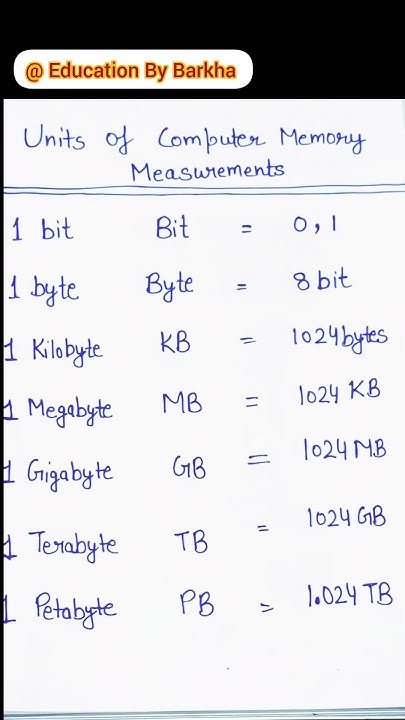 @ Education By Barkha
Units of Computer Memory
Measurements
1 bit Bit = 0, 1
1 byte Byte = 8 bit
1 Kilobyte KB = 1024 bytes
1 Megabyte MB = 1024 KB
1 Gigabyte GB = 1024 MB
1 Terabyte TB = 1024 GB
1 Petabyte PB = 1.024 TB